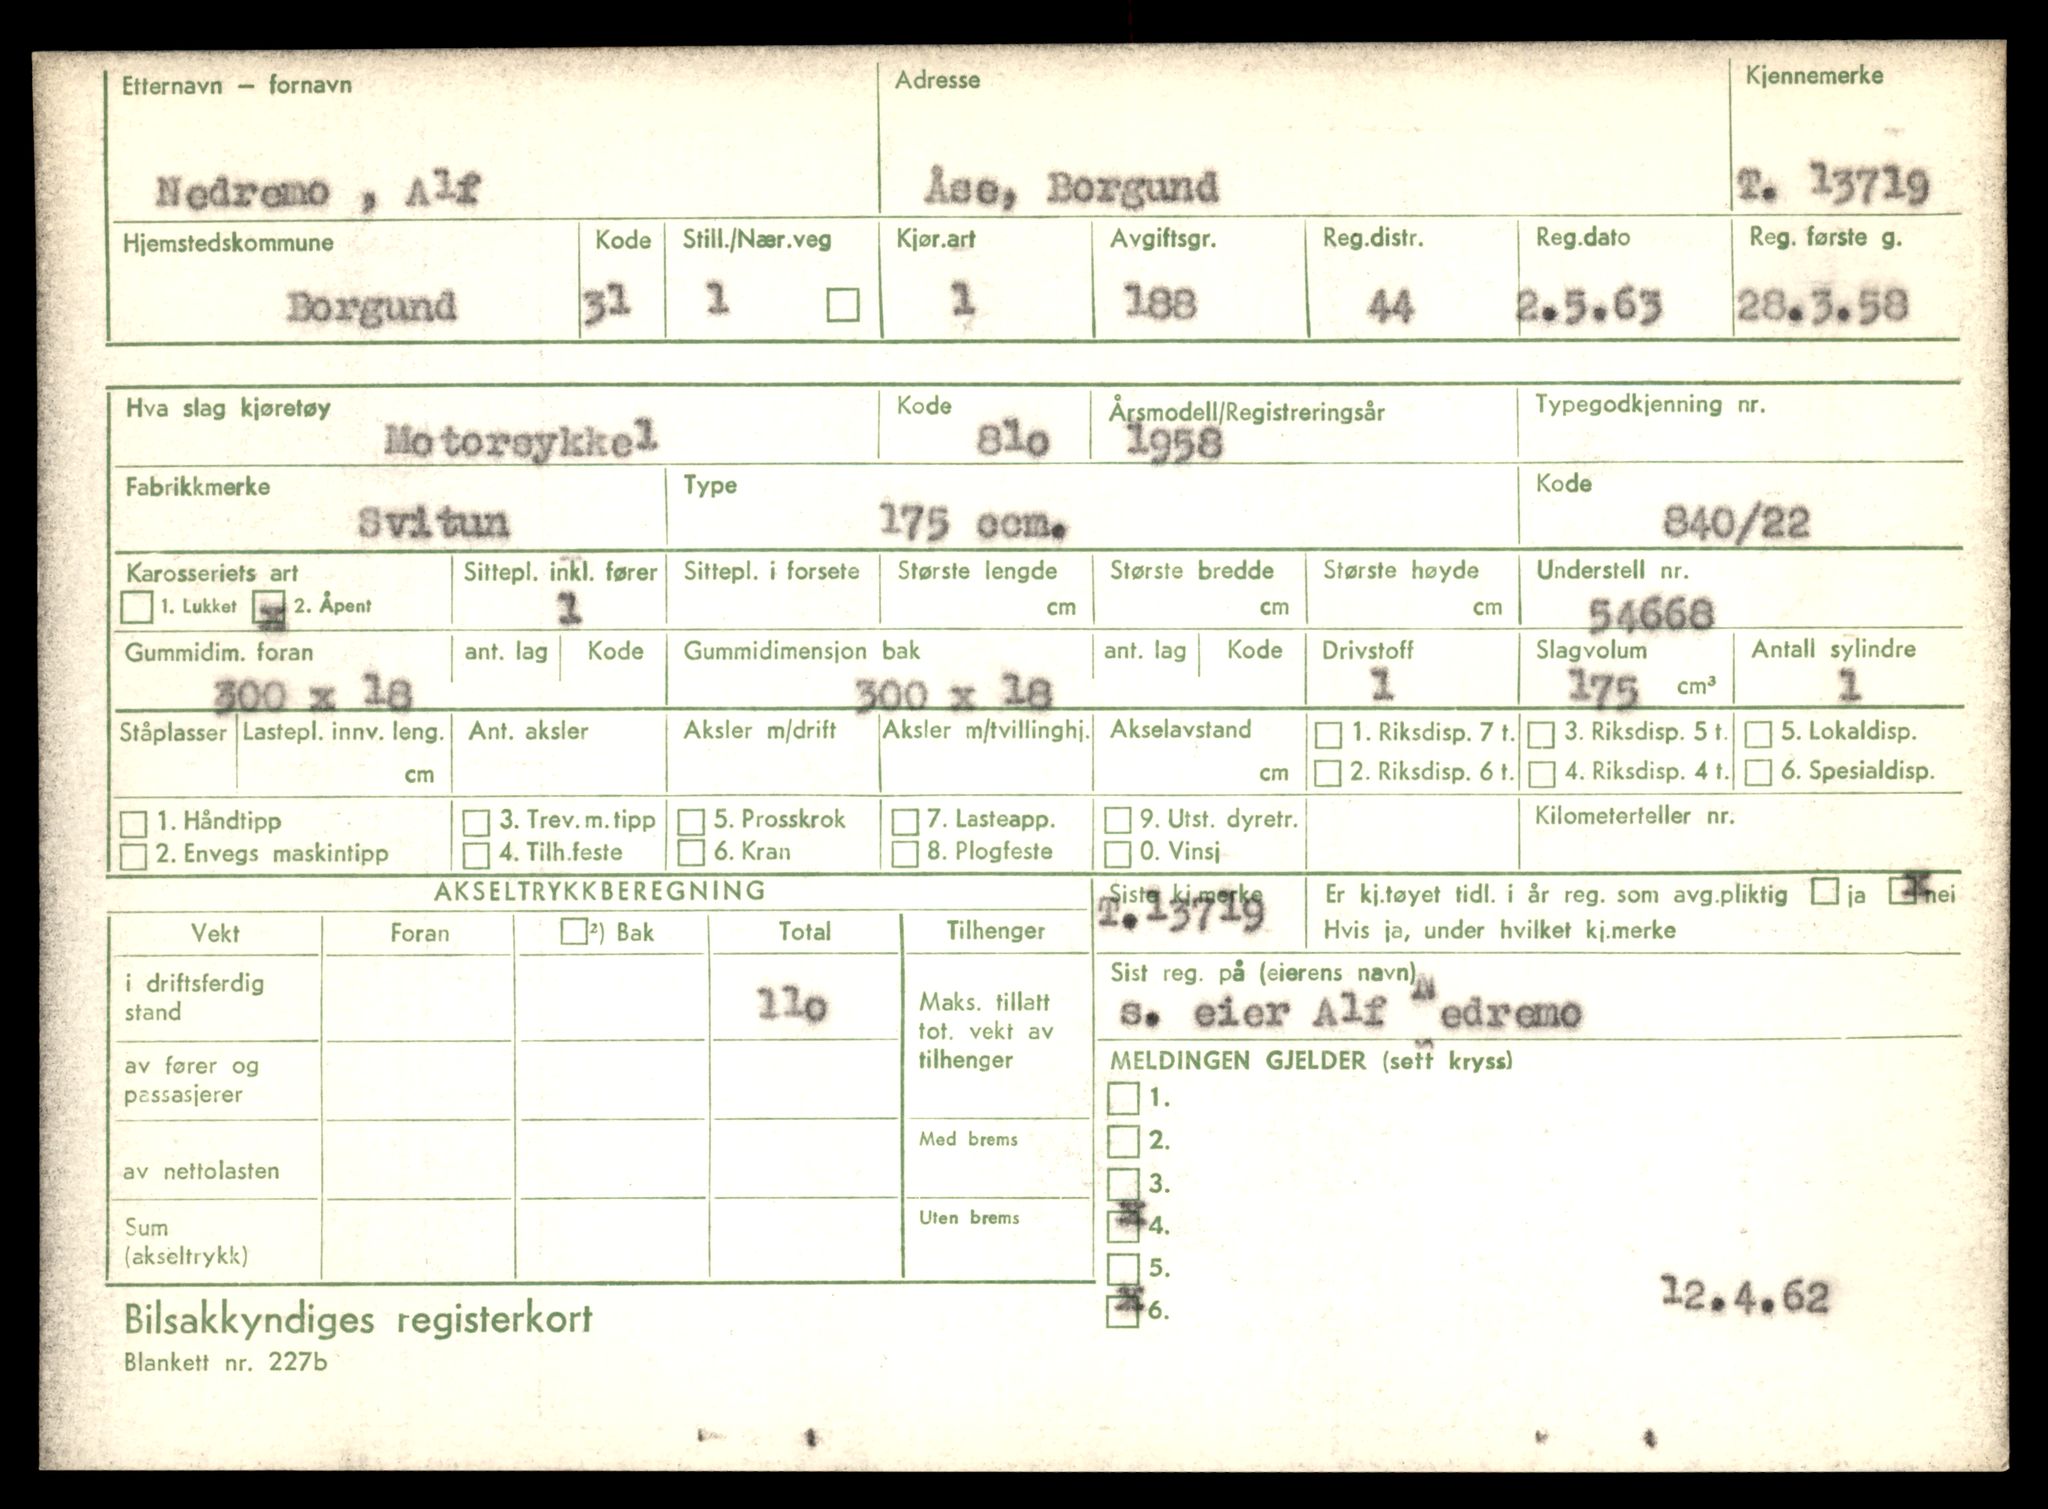 Etternavn — fornavn Adresse Kjennemerke
Nedremo , Alf Åse, Borgund T. 13719
Hjemstedskommune Kode Still./Nær.veg Kjør.art Avgiftsgr. Reg.distr. Reg.dato Reg. første g.
Borgund 31 1 1 188 44 2.5.63 28.3.58
Hva slag kjøretøy Kode Årsmodell/Registreringsår Typegodkjenning nr.
Motorsykkel 81o 1958
Fabrikkmerke Type Kode
Svitun 175 ccm. 840/22
Karosseriets art Sittepl. inkl. fører Sittepl. i forsete Største lengde Største bredde Største høyde Understell nr.
1. Lukket x 2. Åpent 1 cm cm cm 54668
Gummidim. foran ant. lag Kode Gummidimensjon bak ant. lag Kode Drivstoff Slagvolum Antall sylindre
300 x 18 300 x 18 1 175 cm³ 1
Ståplasser Lastepl. innv. leng. Ant. aksler Aksler m/drift Aksler m/tvillinghj. Akselavstand 1. Riksdisp. 7 t. 3. Riksdisp. 5 t. 5. Lokaldisp.
cm cm 2. Riksdisp. 6 t. 4. Riksdisp. 4 t. 6. Spesialdisp.
1. Håndtipp 3. Trev. m. tipp 5. Prosskrok 7. Lasteapp. 9. Utst. dyretr. Kilometerteller nr.
2. Envegs maskintipp 4. Tilh.feste 6. Kran 8. Plogfeste 0. Vinsj
AKSELTRYKKBEREGNING Siste kj.merke Er kj.tøyet tidl. i år reg. som avg.pliktig ja x nei
T.13719
Vekt Foran ²) Bak Total Tilhenger Hvis ja, under hvilket kj.merke
i driftsferdig stand 11o Maks. tillatt tot. vekt av tilhenger
Sist reg. på (eierens navn)
s. eier Alf Nedremo
MELDINGEN GJELDER (sett kryss)
av fører og passasjerer
1.
Med brems
2.
av nettolasten
3.
Uten brems
x 4.
Sum (akseltrykk)
5.
x 6. 12.4.62
Bilsakkyndiges registerkort
Blankett nr. 227b